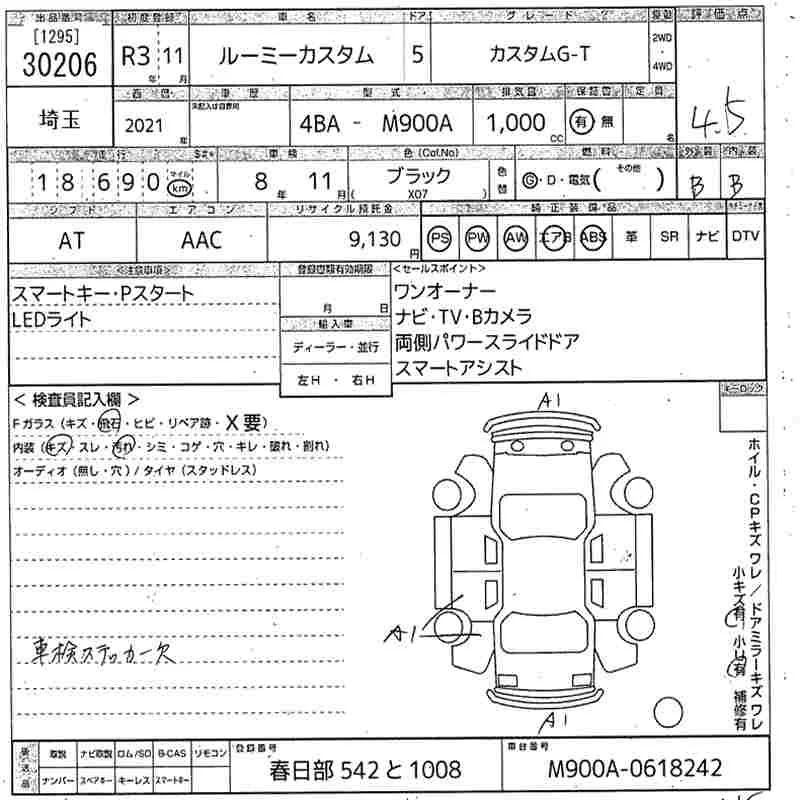 出品番号 初度登録 車名 ドア グレード 駆動 評価点
[1295]
30206 R3 年 11 月 ルーミーカスタム 5 カスタムG-T 2WD ・ 4WD 4.5
埼玉 西暦 車歴 型式 排気量 保証書 定員
未記入は自家用
2021 年 4BA - M900A 1,000 CC 有 無 名
走行 S#* 車検 色(Col,No) 燃料 外装 内装
18690 マイル km 8 年 11 月 ブラック ( X07 ) 色替 G・D・電気( その他 ) B B
シフト エアコン リサイクル預託金 純正装備品
AT AAC 9,130 円 PS PW AW エアB ABS 革 SR ナビ DTV
<注意事項> 登録書類有効期限 <セールスポイント>
スマートキー・Pスタート ワンオーナー
LEDライト 月 日 ナビ・TV・Bカメラ
輸入車 両側パワースライドドア
ディーラー・並行 スマートアシスト
左H ・ 右H
< 検査員記入欄 > キーロック
Fガラス(キズ・飛石・ヒビ・リペア跡・X要)
内装(キズ・スレ・汚れ・シミ・コゲ・穴・キレ・破れ・割れ)
オーディオ(無し・穴)/タイヤ(スタッドレス)
A1
A1
A1
ホイル・CPキズワレ/ドアミラーキズワレ
小キズ有 小凹有 補修有
車検ステッカー欠
後送品 取説 ナビ取説 ロム/SD B-CAS リモコン 登録番号 車台番号
ナンバー スペアキー キーレス スマートキー 春日部 542 と 1008 M900A-0618242